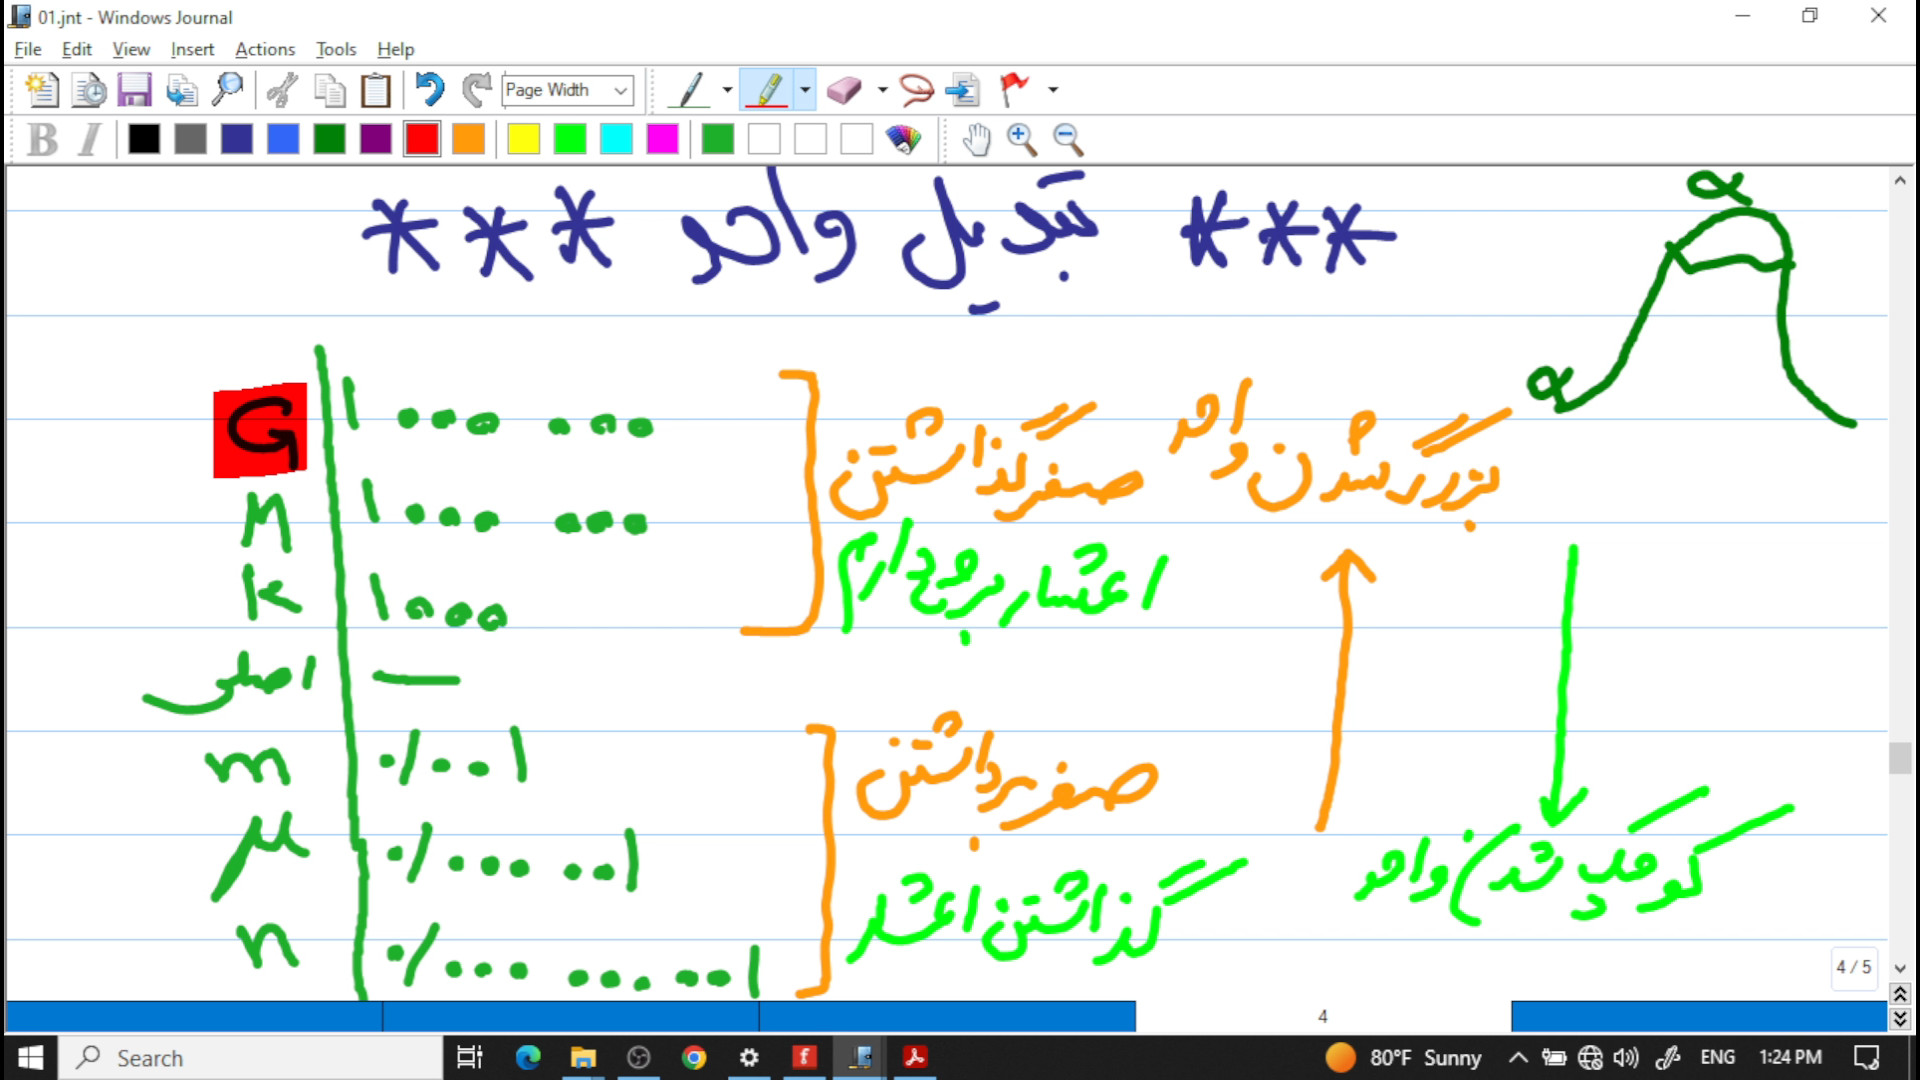 01.jnt - Windows Journal
File Edit View Insert Actions Tools Help
Page Width
B I
*** تبدیل واحد ***
α
α
G ۱ ۰۰۰ ۰۰۰
M ۱ ۰۰۰ ۰۰۰
k ۱۰۰۰
اصلی —
m ۰/۰۰۱
μ ۰/۰۰۰ ۰۰۱
n ۰/۰۰۰ ۰۰۰ ۰۰۱
بزرگ شدن واحد
صفر گذاشتن
اعشار برمی‌دارم
صفر برداشتن
گذاشتن اعشار
کوچک شدن واحد
4 / 5
4
Search
80°F Sunny
ENG
1:24 PM